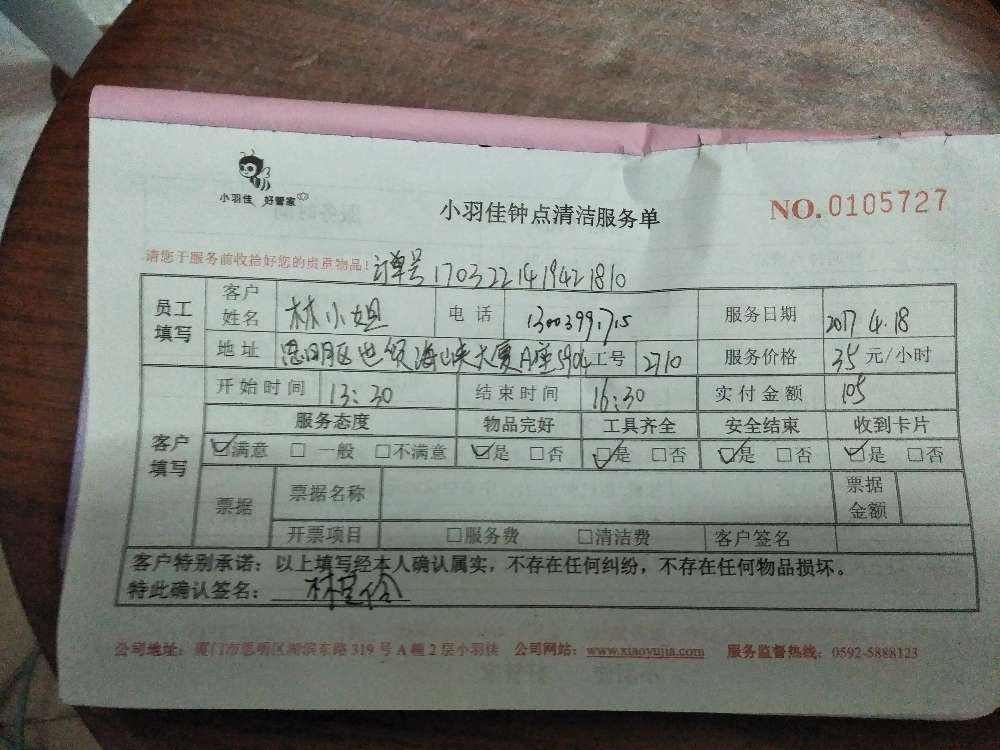 小羽佳 好管家
小羽佳钟点清洁服务单
NO.0105727
请您于服务前收拾好您的贵重物品!
订单号 1703221419421810
员工填写 客户姓名 林小姐 电话 服务日期 2017 4.18
地址 海峡大厦A座5904 工号 2710 服务价格 35元/小时
客户填写 开始时间 13:30 结束时间 16:30 实付金额 105
服务态度 物品完好 工具齐全 安全结束 收到卡片
☑满意 □一般 □不满意 ☑是 □否 ☑是 □否 ☑是 □否 ☑是 □否
票据 票据名称 票据金额
开票项目 □服务费 □清洁费 客户签名
客户特别承诺:以上填写经本人确认属实,不存在任何纠纷,不存在任何物品损坏。
特此确认签名:
公司地址:厦门市思明区湖滨东路319号A幢2层小羽佳 公司网站:www.xiaoyujia.com 服务监督热线:0592-5888123